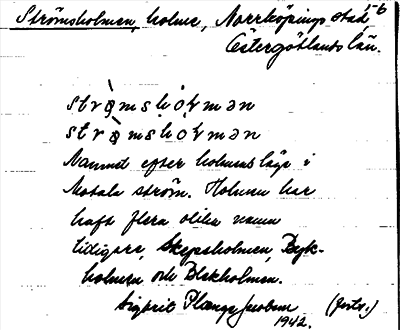 Strömsholmen, holme, Norrköpings stad, 5-6
Östergötlands län.
Namnet efter holmens läge i
Motala ström. Holmen har
haft flera olika namn
tidigare, Skepsholmen, Dyk-
holmen och Blekholmen.
Sigfrid (forts.)
1942.